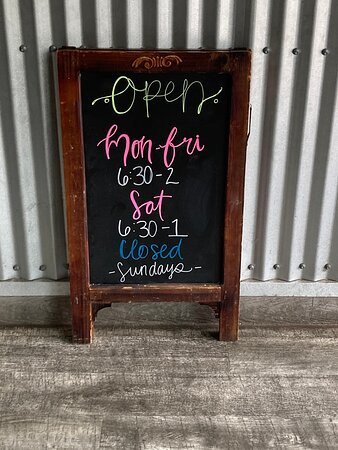 Open
Mon-fri
6:30-2
Sat
6:30-1
Closed
-Sundays-